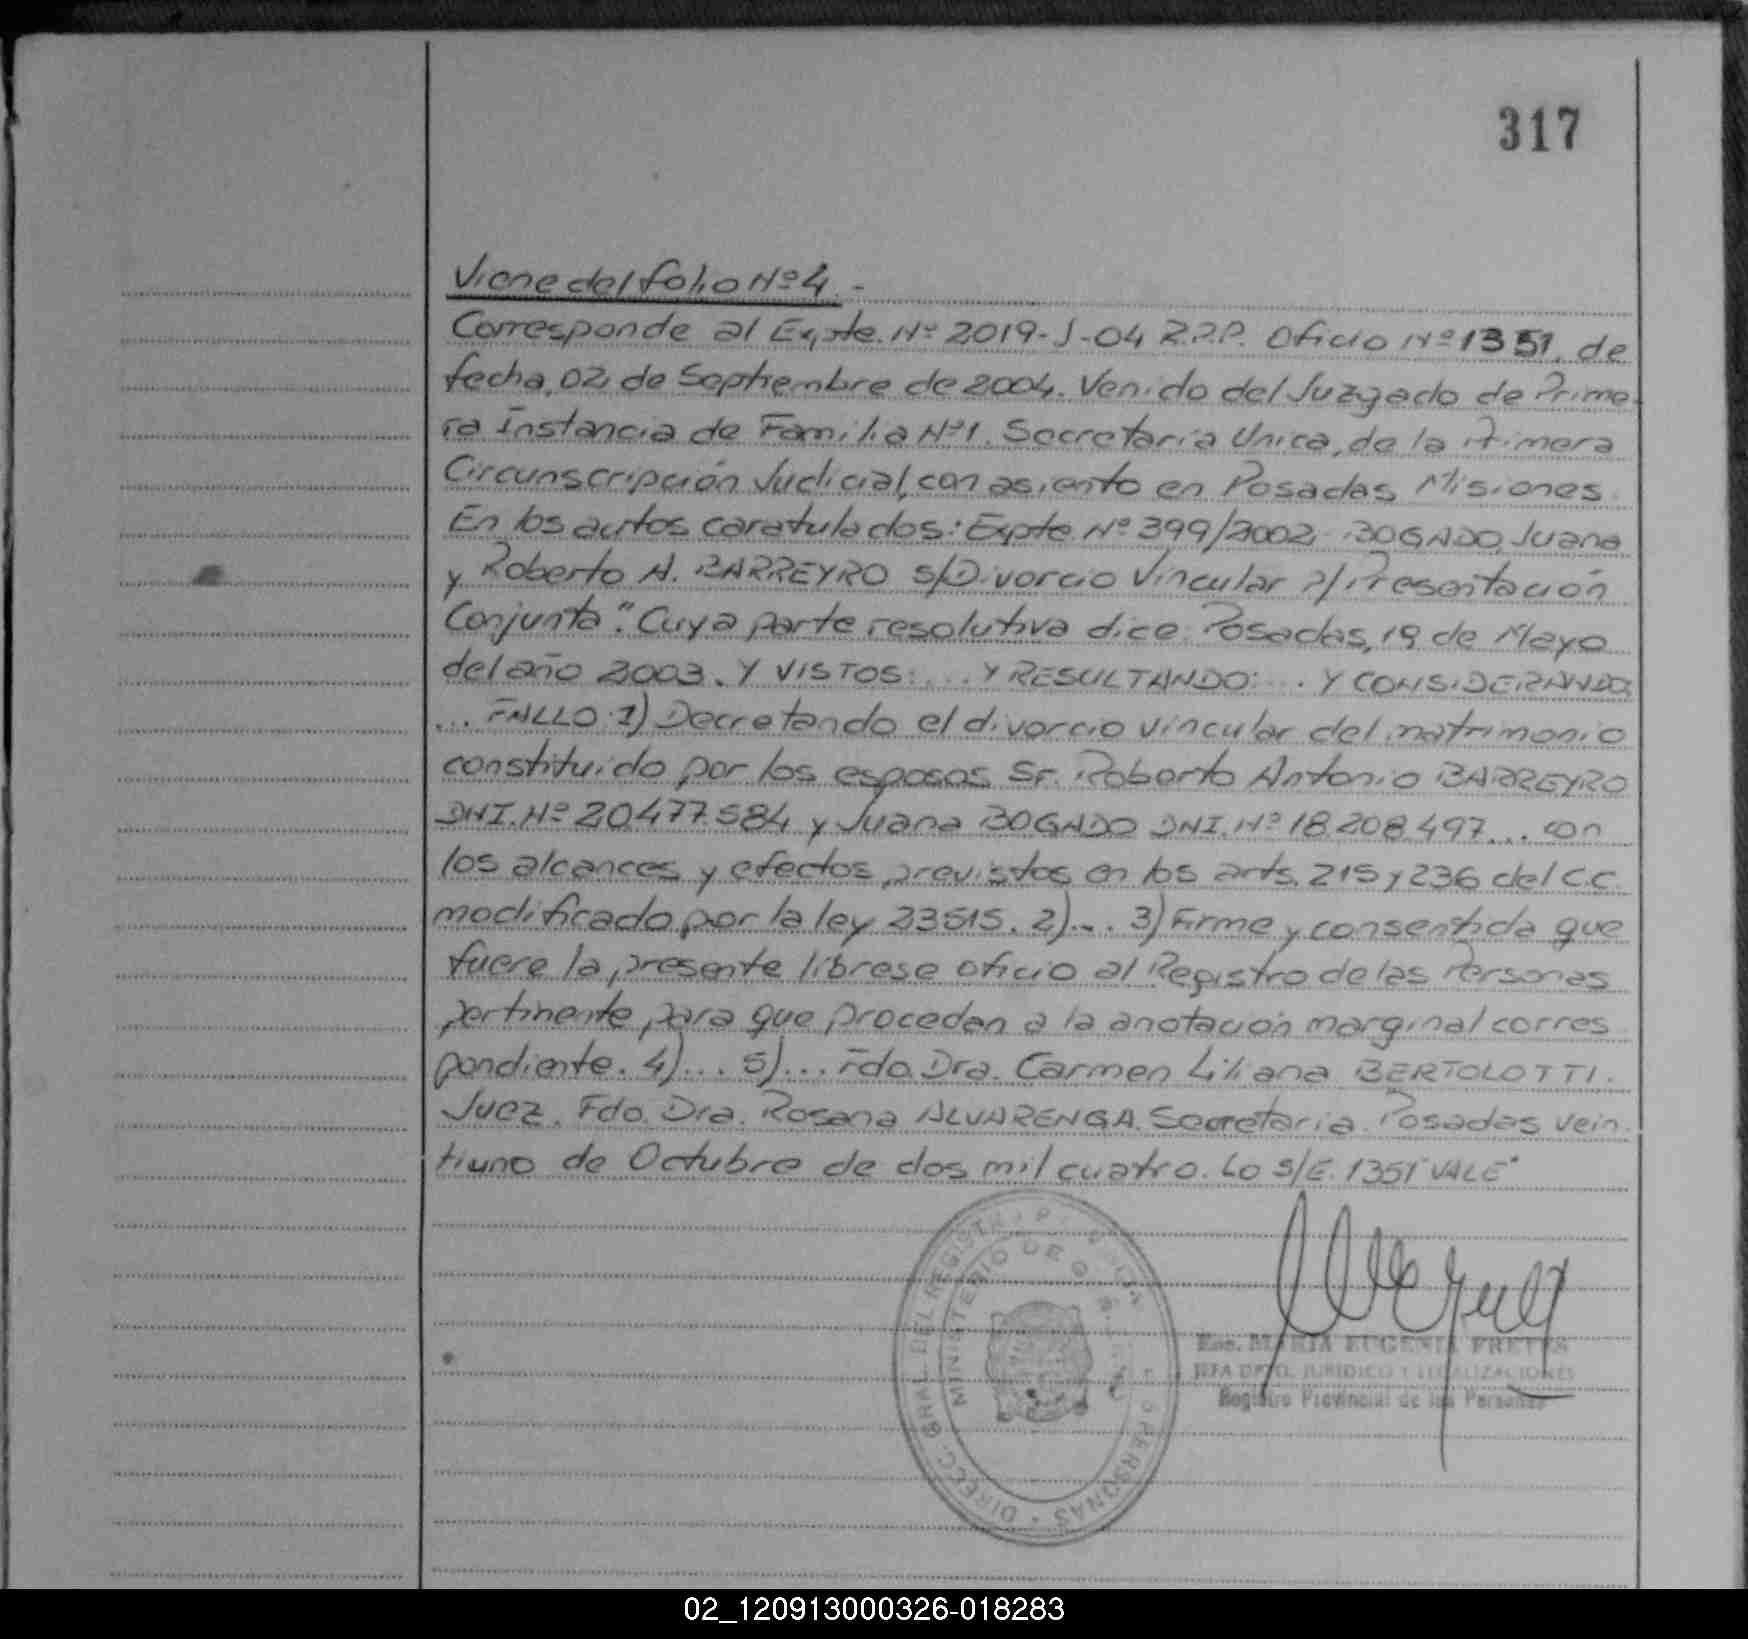 317
Viene del folio Nº 4.-
Corresponde al Expte. Nº 2019-J-04 R.P.P. Oficio Nº 1351. de
fecha, 02, de Septiembre de 2004. Venido del Juzgado de Prime-
ra Instancia de Familia Nº 1. Secretaria Unica, de la Primera
Circunscripción Judicial, con asiento en Posadas Misiones.
En los autos caratulados: Expte Nº 399/2002 BOGADO, Juana
y Roberto A. BARREYRO S/Divorcio Vincular P/Presentación
Conjunta". Cuya parte resolutiva dice: Posadas, 19 de Mayo
del año 2003. Y VISTOS: ... Y RESULTANDO: ... Y CONSIDERANDO
... FALLO: 1) Decretando el divorcio vincular del matrimonio
constituido por los esposos Sr. Roberto Antonio BARREYRO
DNI. Nº 20.477.584 y Juana BOGADO DNI. Nº 18.208.497 ... con
los alcances y efectos previstos en los arts. 215 y 236 del C.C.
modificado por la ley 23515. 2)... 3) Firme y consentida que
fuere la presente librese oficio al Registro de las Personas
pertinente para que procedan a la anotación marginal corres
pondiente. 4)... 5)... Fdo. Dra. Carmen Liliana BERTOLOTTI.
Juez. Fdo. Dra. Rosana ALVARENGA. Secretaria. Posadas vein-
tiuno de Octubre de dos mil cuatro. Lo S/E. 1351 "VALE"
DIRECC. GRAL. DEL REGISTRO PERSONAS
MINISTERIO DE
Esc. MARIA EUGENIA FRETES
JEFA DPTO. JURIDICO Y LEGALIZACIONES
Registro Provincial de las Personas
02_120913000326-018283